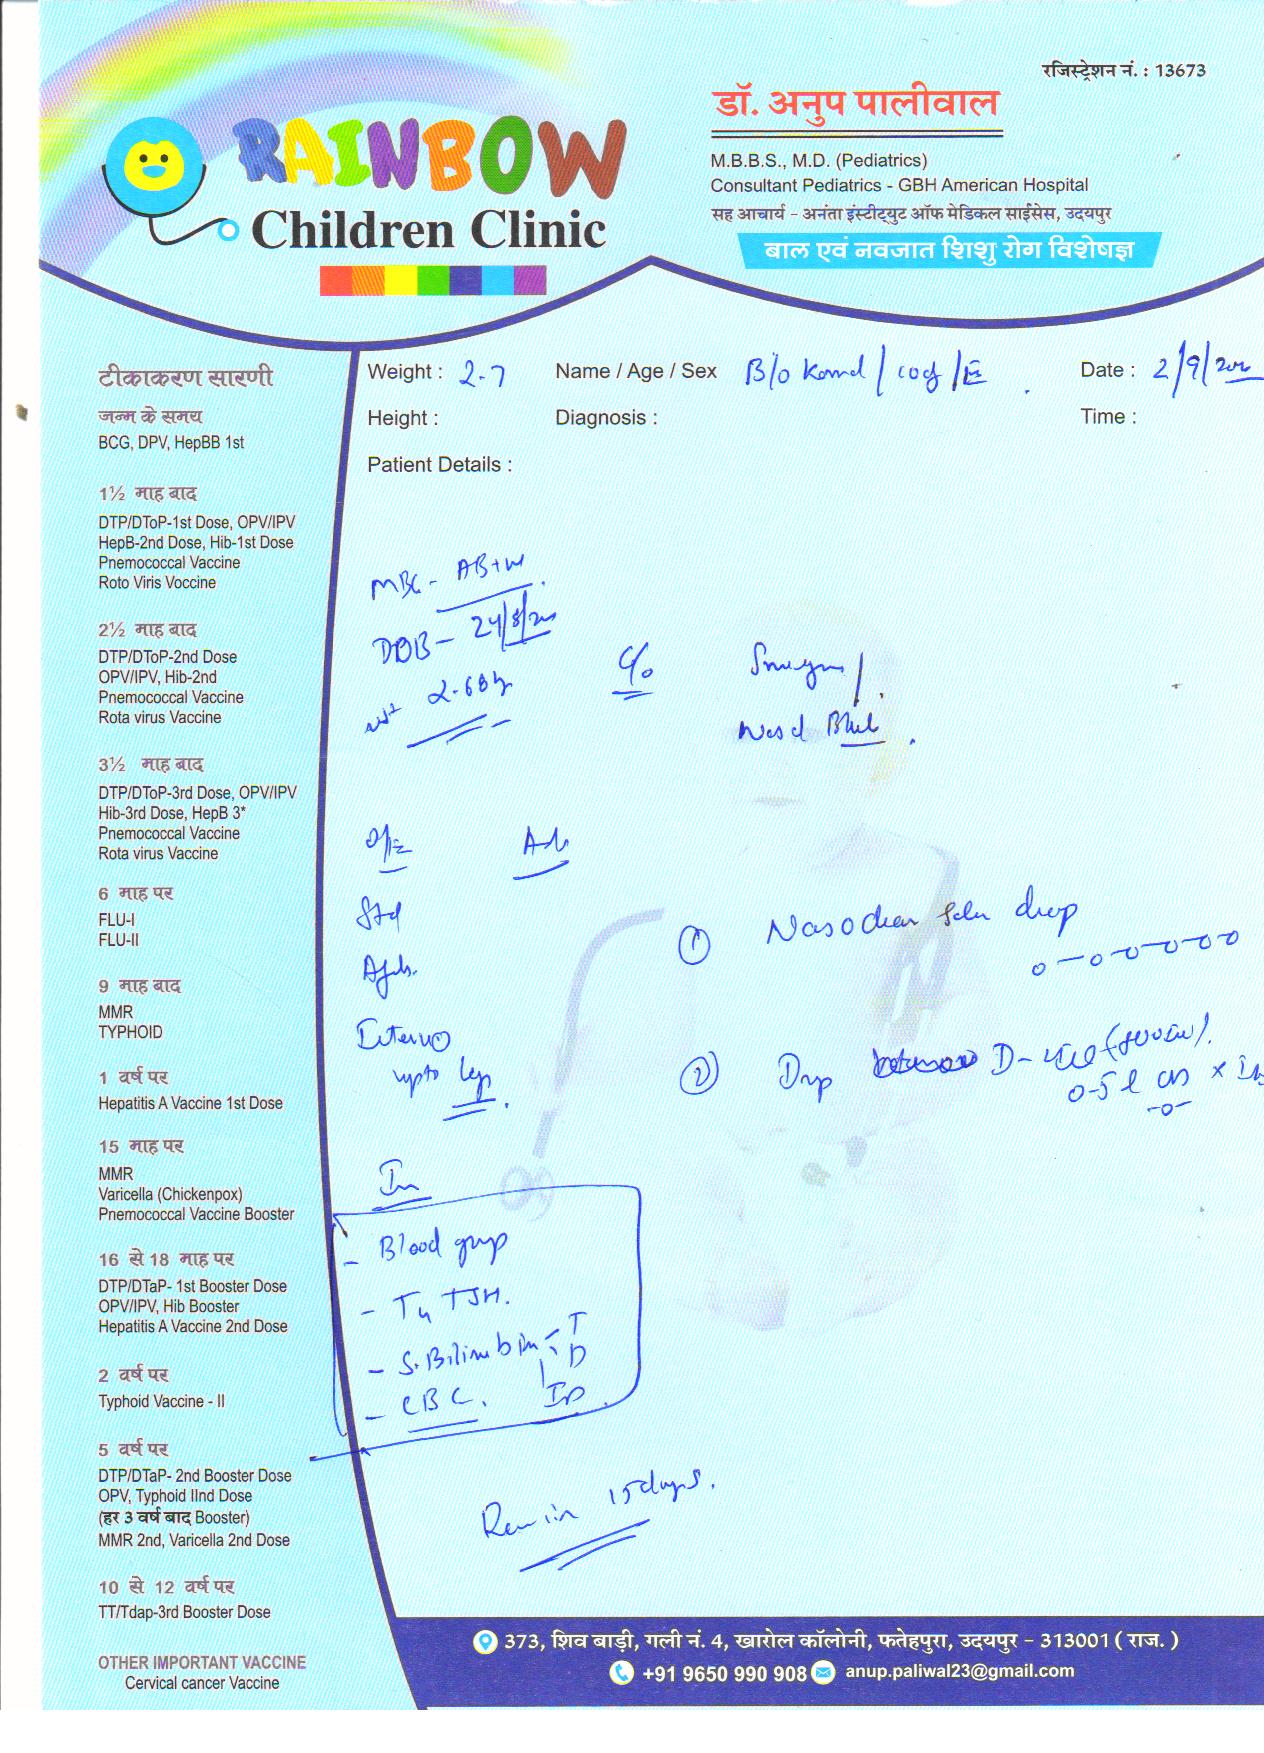 रजिस्ट्रेशन नं. : 13673
डॉ. अनुप पालीवाल
M.B.B.S., M.D. (Pediatrics)
Consultant Pediatrics - GBH American Hospital
सह आचार्य - अनंता इंस्टीट्युट ऑफ मेडिकल साईंसेस, उदयपुर
बाल एवं नवजात शिशु रोग विशेषज्ञ
RAINBOW
Children Clinic
Weight : 2.7 Name / Age / Sex B/o Komal / Date : 2/9/
Height : Diagnosis : Time :
Patient Details :
टीकाकरण सारणी
जन्म के समय
BCG, DPV, HepBB 1st
1½ माह बाद
DTP/DToP-1st Dose, OPV/IPV
HepB-2nd Dose, Hib-1st Dose
Pnemococcal Vaccine
Roto Viris Voccine
2½ माह बाद
DTP/DToP-2nd Dose
OPV/IPV, Hib-2nd
Pnemococcal Vaccine
Rota virus Vaccine
3½ माह बाद
DTP/DToP-3rd Dose, OPV/IPV
Hib-3rd Dose, HepB 3*
Pnemococcal Vaccine
Rota virus Vaccine
6 माह पर
FLU-I
FLU-II
9 माह बाद
MMR
TYPHOID
1 वर्ष पर
Hepatitis A Vaccine 1st Dose
15 माह पर
MMR
Varicella (Chickenpox)
Pnemococcal Vaccine Booster
16 से 18 माह पर
DTP/DTaP- 1st Booster Dose
OPV/IPV, Hib Booster
Hepatitis A Vaccine 2nd Dose
2 वर्ष पर
Typhoid Vaccine - II
5 वर्ष पर
DTP/DTaP- 2nd Booster Dose
OPV, Typhoid IInd Dose
(हर 3 वर्ष बाद Booster)
MMR 2nd, Varicella 2nd Dose
10 से 12 वर्ष पर
TT/Tdap-3rd Booster Dose
OTHER IMPORTANT VACCINE
Cervical cancer Vaccine
MBG -
DOB - 24/8/
C/o
Nasal
O/E
① Nasoclear drop
Icterus
upto legs
② Drop D-
0.5
Blood group
- T4 TSH.
- S. Bilirubin T
D
- CBC. ID
Rev in 15 days.
373, शिव बाड़ी, गली नं. 4, खारोल कॉलोनी, फतेहपुरा, उदयपुर - 313001 ( राज. )
+91 9650 990 908 anup.paliwal23@gmail.com